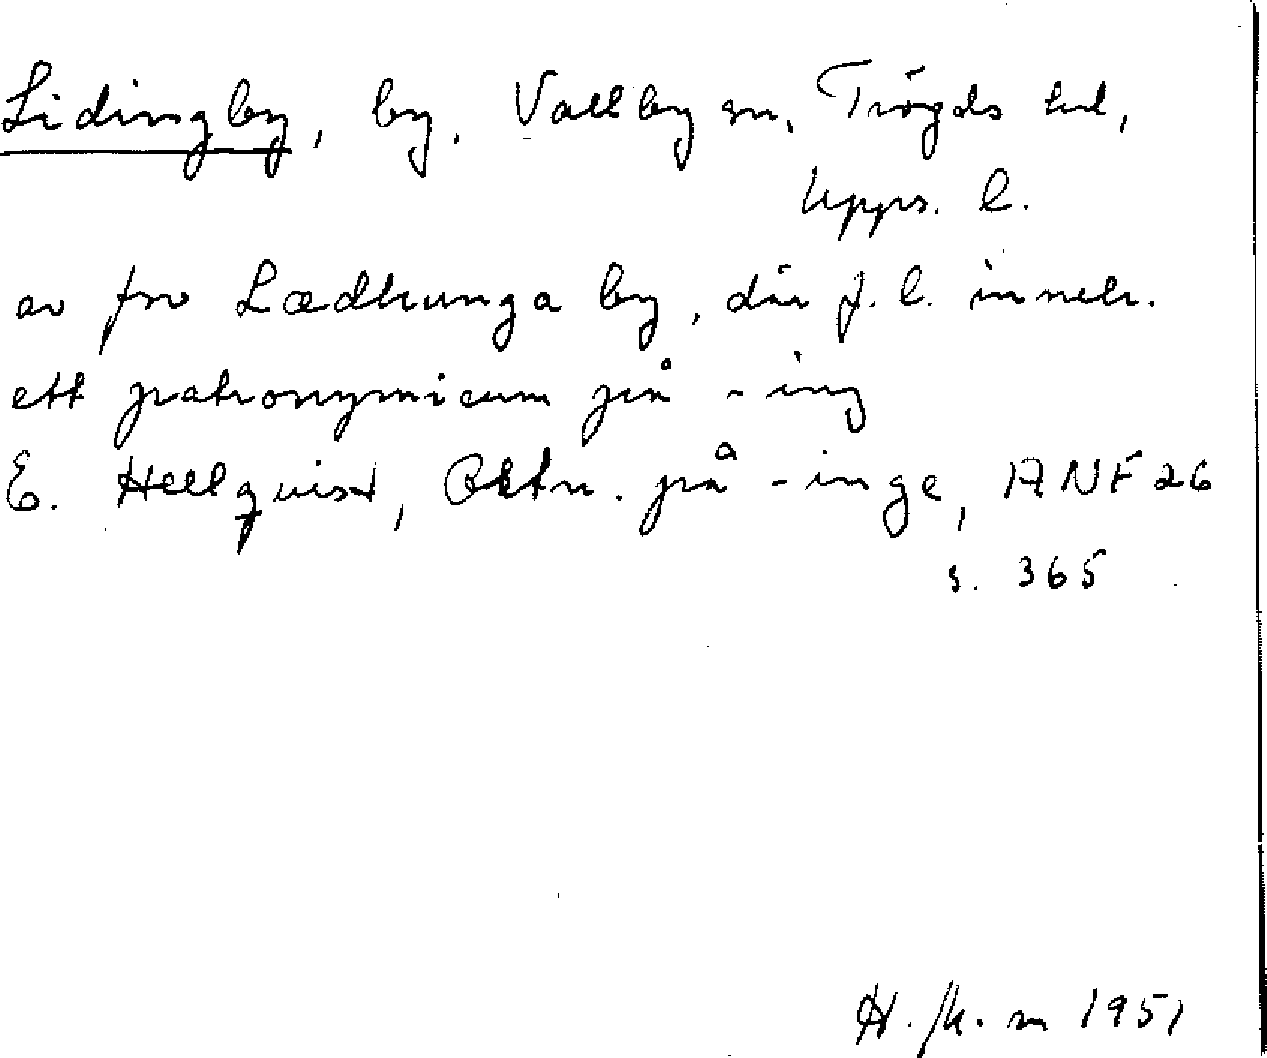 Lidingby, by. Vallby sn, Trögds hd,
Upps. l.
av fsv Lædhunga by, där f. l. inneh.
ett patronymicum på -ing
E. Hellquist, Ortn. på -inge, ANF 26
s. 365
1951